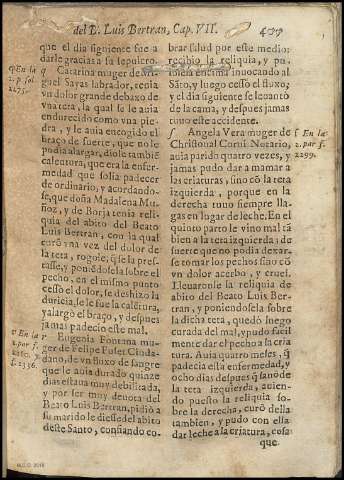 del B. Luis Bertran, Cap. VII. 
que el dia siguiente fue a
darle gracias a su sepulcro.
q Catarina muger de
guel Sayas labrador, tenia
vn dolor grande debaxo de
vna teta, la qual se le auia
endurecido como vna pie
dra, y le auia encogido el
braço de suerte, que no le
podia alargar, diole tambiẽ
calentura, que era la enfer-
medad que solia padecer
de ordinario, y acordando-
se, que doña Madalena Mu-
ñoz, y de Borja tenia reli-
quia del abito del Beato
Luis Bertran, con la qual
curò vna vez del dolor de
la teta, rogole; q̃ se la pres-
tasse, y poniẽdosela sobre el
pecho, en el mismo punto
cessò el dolor, se deshizo la
duricia, se le fue la calẽtura,
y alargò el braço, y despues
jamas padeciò este mal.
r Eugenia Fontana mu-
ger de Felipe Fuser Ciuda-
dano, de vn fluxo de sangre
que le auia durado quinze
dias estaua muy debilitada,
y por ser muy deuota del
Beato Luis Bertran, pidiò a
su marido le diesse del abito
deste Santo, confiando co-
q En la
2. p. fol.
2275.
r En la
2. par. f.
2336.
brar salud por este medio;
recibiò la reliquia, y pu
encima inuocando al
Sãto, y luego cessò el fluxo;
y el dia siguiente se leuantò
de la cama, y despues jamas
tuuo este accidente.
s Angela Vera muger de
Christoual Corui Notario,
auia parido quatro vezes, y
jamas pudo dar a mamar a
las criaturas, sino cõ la teta
izquierda, porque en la
derecha tuuo siempre lla-
gas en lugar de leche. En el
quinto parto le vino mal tã
bien a la teta izquierda; de
suerte que no podia dexar-
se tomar los pechos sino cõ
vn dolor acerbo, y cruel.
Lleuaronse la reliquia de
abito del Beato Luis Ber-
tran, y poniendosela sobre
la dicha teta, quedò luego
curada del mal, y pudo facil
mente dar el pecho a la cria
tura. Auia quatro meses, q̃
padecia esta enfermedad, y
ocho dias despues q̃ sanò de
la teta izquierda, auien-
do puesto la reliquia so-
bre la derecha, curò della
tambien, y pudo con ella
dar leche a la criatura, cosa
que
s En la
2. par. f.
2299.